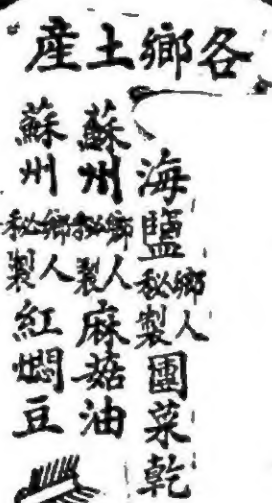 各鄉土產
海鹽鄉人秘製團菜乾
蘇州鄉人秘製麻菇油
蘇州鄉人秘製紅燜豆